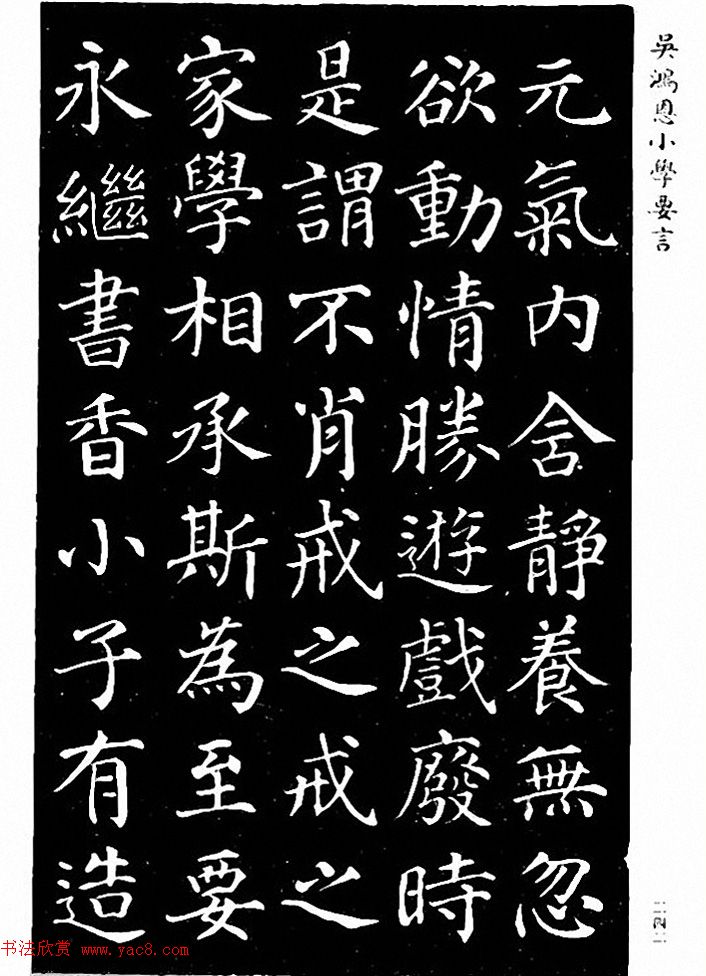 吳鴻恩小學要言
元氣內含靜養無忽
欲動情勝遊戲廢時
是謂不肖戒之戒之
家學相承斯為至要
永繼書香小子有造
二四二
书法欣赏 www.yac8.com